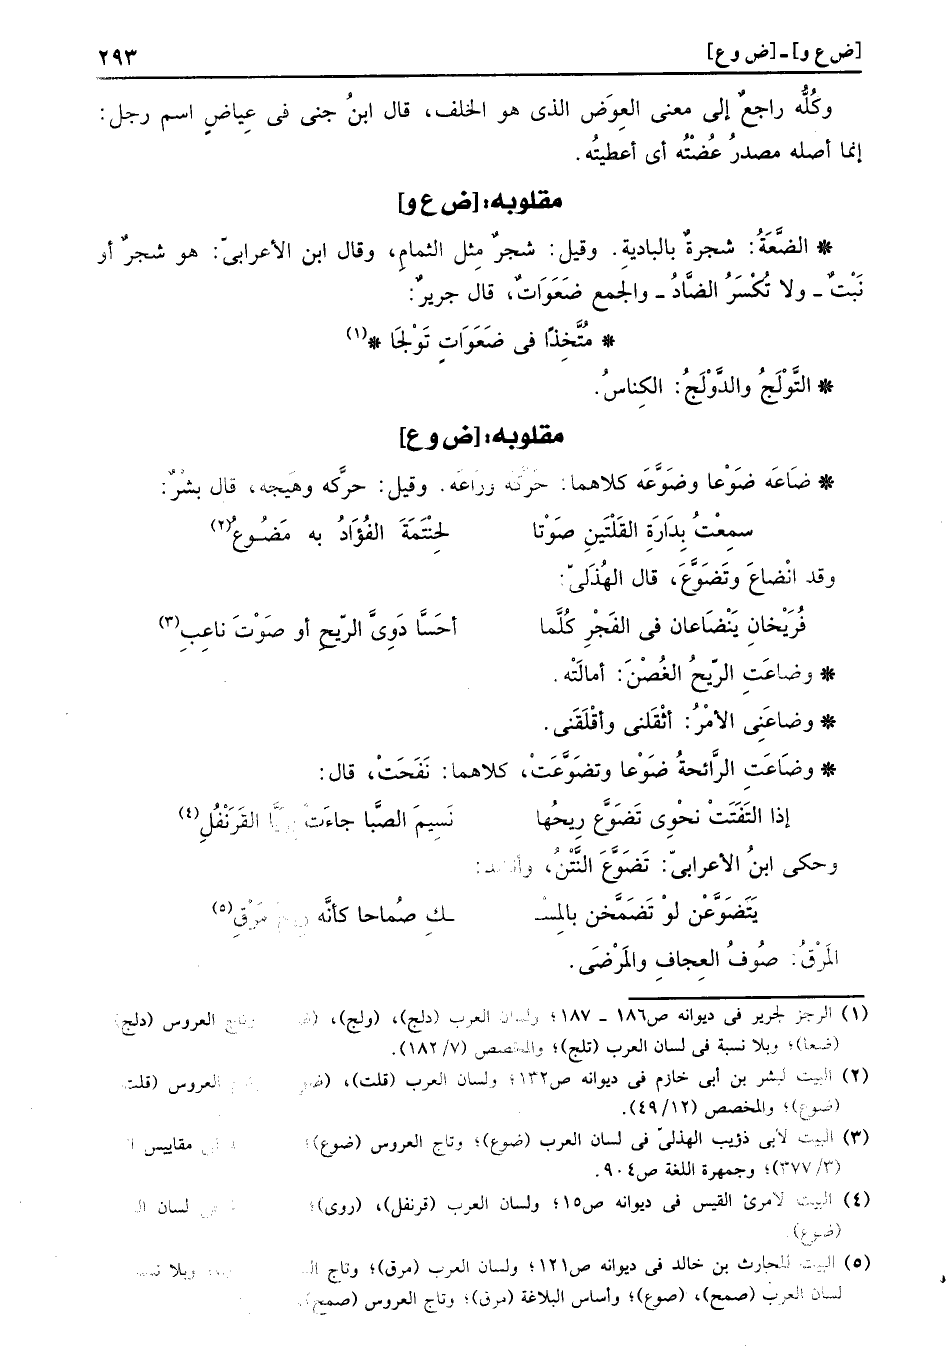 [ض ع و] ـ [ض و ع] ٢٩٣
وكُلُّه راجعٌ إلى معنى العِوَض الذى هو الخلف، قال ابنُ جنى فى عِياضٍ اسم رجل:
إنما أصله مصدرُ عُضْتُه أى أعطيتُه.
مقلوبه: [ض ع و]
* الضَّعَةُ: شجرةٌ بالباديةِ. وقيل: شجرٌ مِثل الثمامِ، وقال ابن الأعرابىّ: هو شجرٌ أو
نَبْتٌ ـ ولا تُكْسَرُ الضَّادُ ـ والجمع ضَعَوَاتٌ، قال جريرٌ:
* مُتَّخِذًا فى ضَعَوَاتٍ تَوْلَجَا *(١)
* التَّوْلَجُ والدَّوْلَجُ: الكِناسُ.
مقلوبه: [ض و ع]
* ضَاعَه ضَوْعا وضَوَّعَه كلاهما: حَرَّكَه ورَاعَه. وقيل: حركَّه وهَيجه، قال بِشْرٌ:
سمِعْتُ بِدَارَةِ القَلْتَينِ صَوْتا لِحِنْتَمَةَ الفُؤَادُ به مَضُـوعُ(٢)
وقد انْضاعَ وتَضَوَّعَ، قال الهُذَلىّ:
فُرَيْخانِ يَنْضَاعان فى الفَجْرِ كُلَّما أحَسَّا دَوِىَّ الرّيحِ أو صَوْتَ ناعِبِ(٣)
* وضاعَتِ الرّيحُ الغُصْنَ: أمالَتْه.
* وضاعَنِى الأمْرُ: أثْقَلنى وأقْلَقَنى.
* وضَاعَتِ الرَّائحةُ ضَوْعا وتضَوَّعَتْ، كلاهما: نَفَحَتْ، قال:
إذا التَفَتَتْ نحْوِى تَضَوَّع رِيحُها نَسِيمَ الصَّبا جاءَتْ بِرَيَّا القَرَنْفُلِ(٤)
وحكى ابنُ الأعرابىّ: تَضَوَّعَ النَّتْنُ، وأنشد:
يَتَضَوَّعْن لوْ تَضَمَّخن بالمِسْـ ـكِ صُماحا كأنَّه رِيحُ مَرْقِ(٥)
المَرْقُ: صُوفُ العِجافِ والمَرْضَى.
(١) الرجز لجرير فى ديوانه ص١٨٦ ـ ١٨٧؛ ولسان العرب (دلج)، (ولج)، وتاج العروس (دلج)
(ضعا)؛ وبلا نسبة فى لسان العرب (تلج)؛ والمخصص (٧/ ١٨٢).
(٢) البيت لبشر بن أبى خازم فى ديوانه ص١٣٢؛ ولسان العرب (قلت)، العروس (قلت
(ضوع)؛ والمخصص (١٢/ ٤٩).
(٣) البيت لأبى ذؤيب الهذلىّ فى لسان العرب (ضوع)؛ وتاج العروس (ضوع)؛ مقاييس
(٣/ ٣٧٧)؛ وجمهرة اللغة ص٩٠٤.
(٤) البيت لامرئ القيس فى ديوانه ص١٥؛ ولسان العرب (قرنفل)، (روى)؛ لسان
(ضوع).
(٥) البيت للحارث بن خالد فى ديوانه ص١٢١؛ ولسان العرب (مرق)؛ وتاج وبلا
لسان العرب (صمح)، (صوع)؛ وأساس البلاغة (مرق)؛ وتاج العروس (صمح).